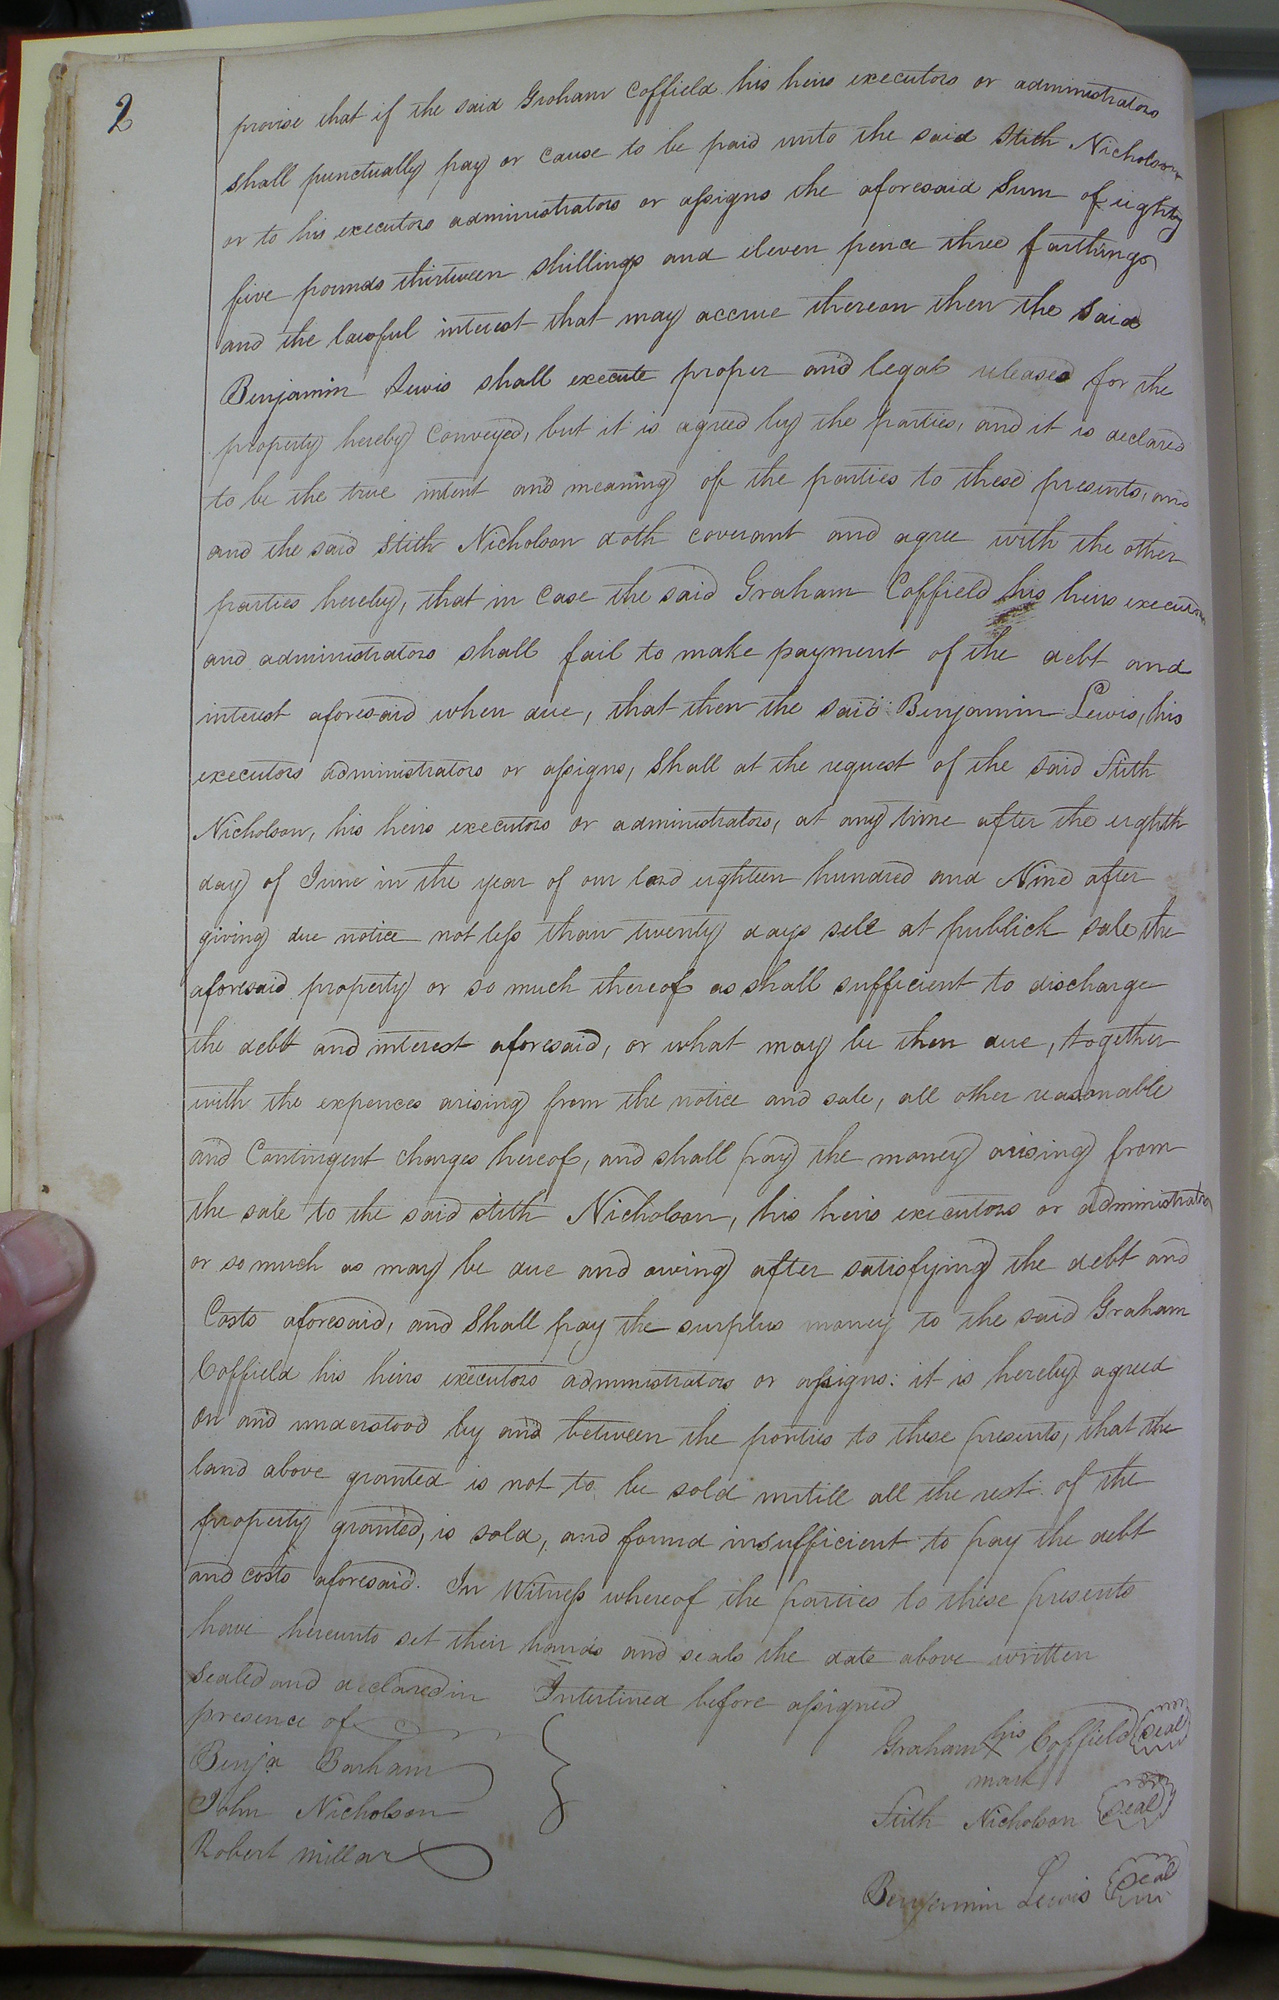 2
provise that if the said Graham Coffield his heirs executors or administrators
shall punctually pay or cause to be paid unto the said Stith Nicholson
or to his executors administrators or assigns the aforesaid sum of eighty
five pounds thirteen shillings and eleven pence three farthings
and the lawful interest that may accrue thereon then the said
Benjamin Lewis shall execute proper and legal releases for the
property hereby conveyed, but it is agreed by the parties, and it is declared
to be the true intent and meaning of the parties to these presents, and
and the said Stith Nicholson doth covenant and agree with the other
parties hereby, that in case the said Graham Coffield his heirs executors
and administrators shall fail to make payment of the debt and
interest aforesaid when due, that then the said Benjamin Lewis, his
executors administrators or assigns, shall at the request of the said Stith
Nicholson, his heirs executors or administrators, at any time after the eighth
day of June in the year of our lord eighteen hundred and Nine after
giving due notice not less than twenty days sell at publick sale the
aforesaid property or so much thereof as shall sufficient to discharge
the debt and interest aforesaid, or what may be then due, together
with the expences arising from the notice and sale, all other reasonable
and Contingent charges hereof, and shall pay the money arising from
the sale to the said Stith Nicholson, his heirs executors or administrators
or so much as may be due and owing after satisfying the debt and
Costs aforesaid, and Shall pay the surplus money to the said Graham
Coffield his heirs executors administrators or assigns: it is hereby agreed
on and understood by and between the parties to these presents, that the
land above granted is not to be sold untill all the rest of the
property granted, is sold, and found insufficient to pay the debt
and costs aforesaid. In Witness whereof the parties to these presents
have hereunto set their hands and seals the date above written
sealed and declared in Interlined before assigned
presence of
Benja Barham
John Nicholson
Robert millar
Graham his Coffield Seal
X
mark
Stith Nicholson Seal
Benjamin Lewis Seal